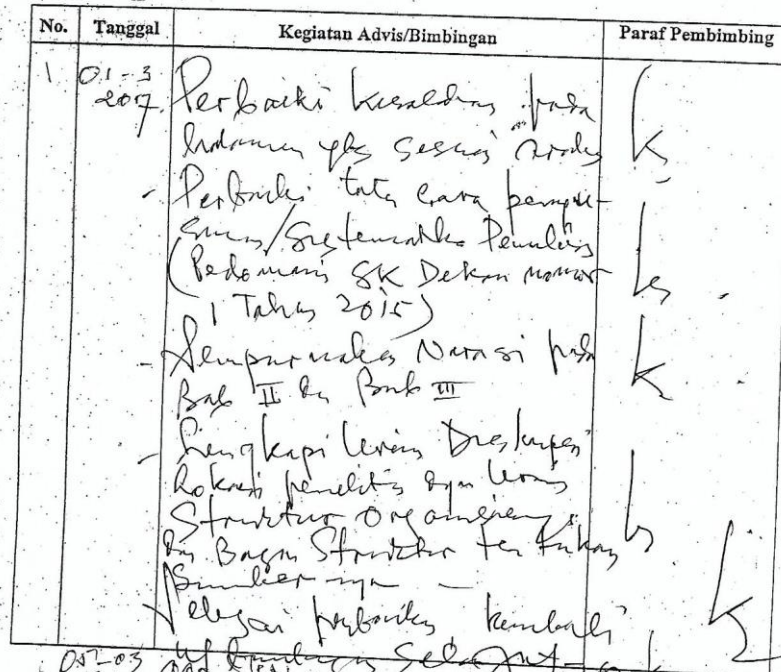 No. Tanggal Kegiatan Advis/Bimbingan Paraf Pembimbing
1 01-3 Perbaiki kesalahan pada
2017 halaman yg sesuai
- Perbaiki tata cara
/Sistematika Penulisan
(Pedoman SK Dekan nomor
1 Tahun 2015)
- Sempurnakan Narasi pada
Bab II dan Bab III
- Lengkapi uraian Deskripsi
Lokasi penelitian dgn uraian
Struktur Organisasi
dan Bagan Struktur
Sumber-nya
kembali
05-03